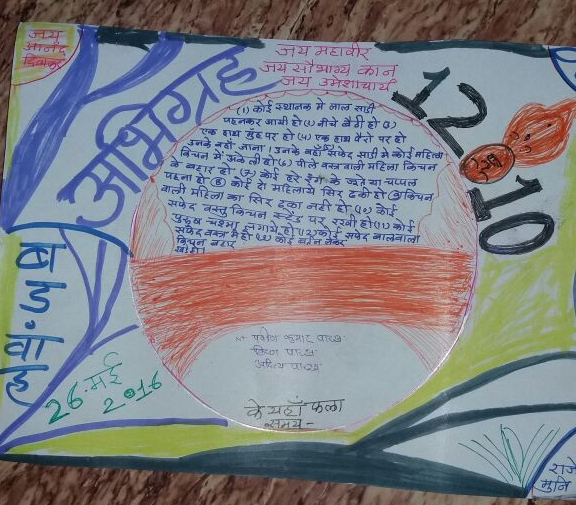 जय
आनंद
दिवाकर
जय महावीर
जय सौभाग्य कान
जय उमेशाचार्य
अभिग्रह
12
10
(1) कोई स्थानक मे लाल साडी
पहनकर आयी हो (2) नीचे बैठी हो (3)
एक हाथ मुंह पर हो (4) एक हाथ पैरो पर हो
उनके यहाँ जाना। उनके वहाँ सफेद साडी मे कोई महिला
किचन में अकेली हो (6) पीले वस्त्र वाली महिला किचन
के बहार हो (7) कोई हरे रंग के जूते या चप्पल
पहना हो (8) कोई दो महिलाये सिर ढकी हो (9) किचन
वाली महिला का सिर ढका नही हो (10) कोई
सफेद वस्तु किचन स्टेंड पर रखी हो (11) कोई
पुरुष चश्मा लगाये हो (12) कोई सफेद बालवाला
सफेद वस्त्र में हो (13) कोई बर्तन लेकर
किचन बहार
खडी।
बड़वाह
26 मई
2016
के यहाँ फला
समय -
राजे
मुनि